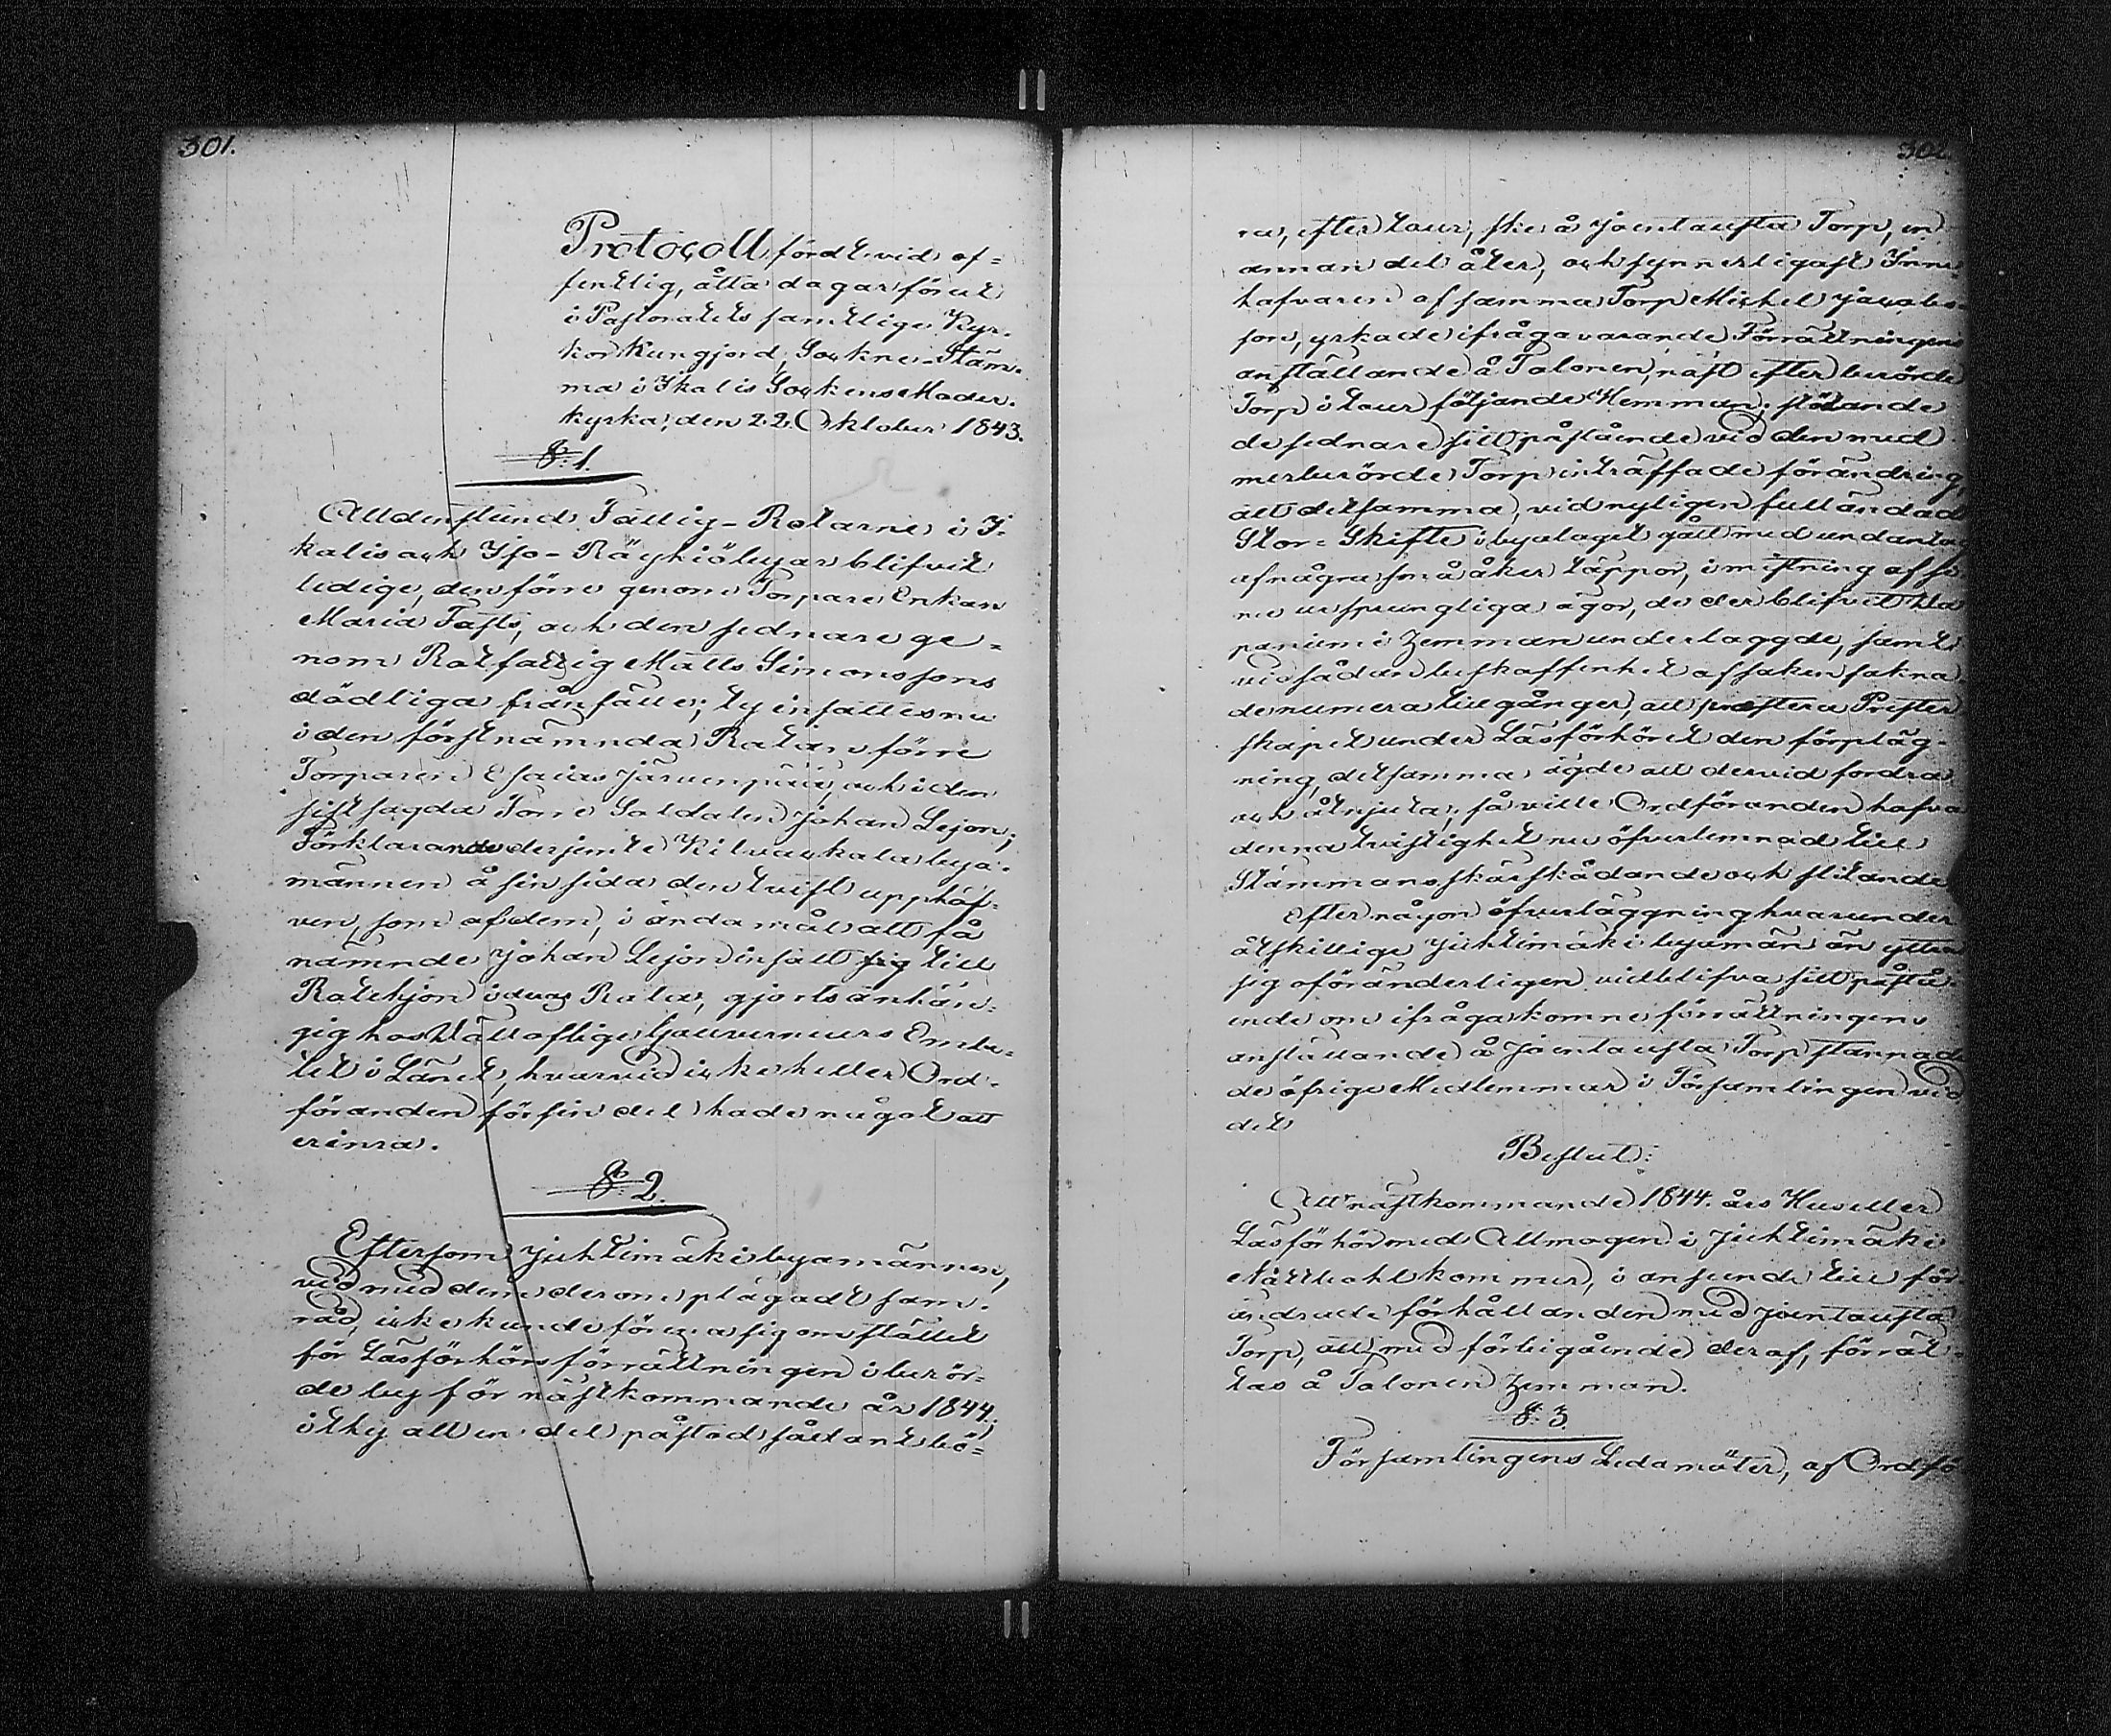 301.
Protocoll fördt vid of=
fentlig, åtta dagar förut
i Pastoratets samtlige Kyr-
kor kungjord, Sockne-Stäm-
ma i Ikalis Sockens Moder-
kyrka, den 22 Oktober 1843.
§. 1.
Alldenstund Fattig-Rotarne i I-
kalis och Iso-Röyhiö byar blifvit
ledige, den förre genom Torpare Enkan
Maria Fasts, och den sednare ge=
nom Rotfattig Matts Simonssons
dödliga frånfälle; ty införes nu
i den förstnämnda Rotan förre
Torparen Esaias Järvenpää, och i den
sistsagda Förre Soldaten Johan Lejon;
Förklarande derjemte Kilvakkala bya-
männen å sin sida den tvist upphäf-
ven, som af dem, i ändamål att få
nämnde Johan Lejon införd sig till
Rotehjon i deras Rota, gjorts anhän-
gig hos Välloflige Gouverneurs Embe-
tet i Länet, hvarvid icke heller Ord-
föranden för sin del hade något att
erinra.
§. 2.
Eftersom Juhtimäki byamännen,
vid med dem derom plägadt sam-
råd, icke kunde förena sig om stället
för Läsförhörs förrättningen i berör-
de by för nästkommande år 1844,
ithy att en del påstod sådant bö=
302
ra, efter tour, ske å Jäentausta Torp, en
annan del åter, och synnerligast Inne
hafvaren af samma Torp Michel Jacobs-
son, yrkade ifrågavarande Förrättningens
anställande å Talonen, näst efter berörde
Torp i tour följande Hemman; stödande
de sednare sitt påstående vid den med
merberörde Torp inträffade förändring,
att detsamma, vid nyligen fulländad
Stor-Skifte i byalaget gått med undantag
af några små åker täppor, i mistning af si-
ne ursprungliga ägor, de der blifvit Ha
paniemi Hemman underlaggde, samt
vid sådan beskaffenhet af saken sakna-
de numera tillgånger, att præstera Prester
skapet under Läsförhöret den förpläg-
ning, detsamma ägde att dervid fordra
och åtnjuta; så ville Ordföranden hafva
denna tvistighet nu öfverlemnad till
Stämmans skärskådande och slitande
Efter någon öfverläggning hvarunder
åtskillige Juhtimäki byamän än ytter
sig oföränderligen vidblifva sitt påstå-
ende om ifrågakomne förrättningens
anställande å Jäentausta Torp stannade
de öfrige Medlemmar i Församlingen vid
det
Beslut:
Att nästkommande 1844. års Hus eller
Läsförhör med Allmogen i Juhtimäki
Mattlahl kommer, i anseende till för
ändrade förhållanden med Jäentausta
Torp, att med förbigående deraf, förrät-
tas å Talonen Hemman.
§. 3.
Församlingens Ledamöter, af Ordfö